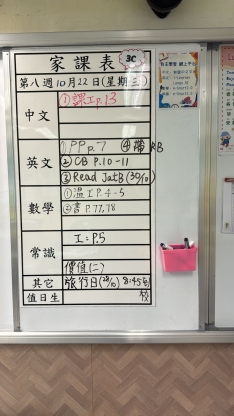 家課表 3C
第八週10月22日(星期三)
中文 ①課工p.13
英文 ①PP p.7 ④帶RB
②CB P.10-11
③Read JatB (30/10)
數學 ①溫工P.4-5
②書P.77,78
常識 工:P.5
價值(二)
其它 旅行日(28/10) 8:45到校
值日生